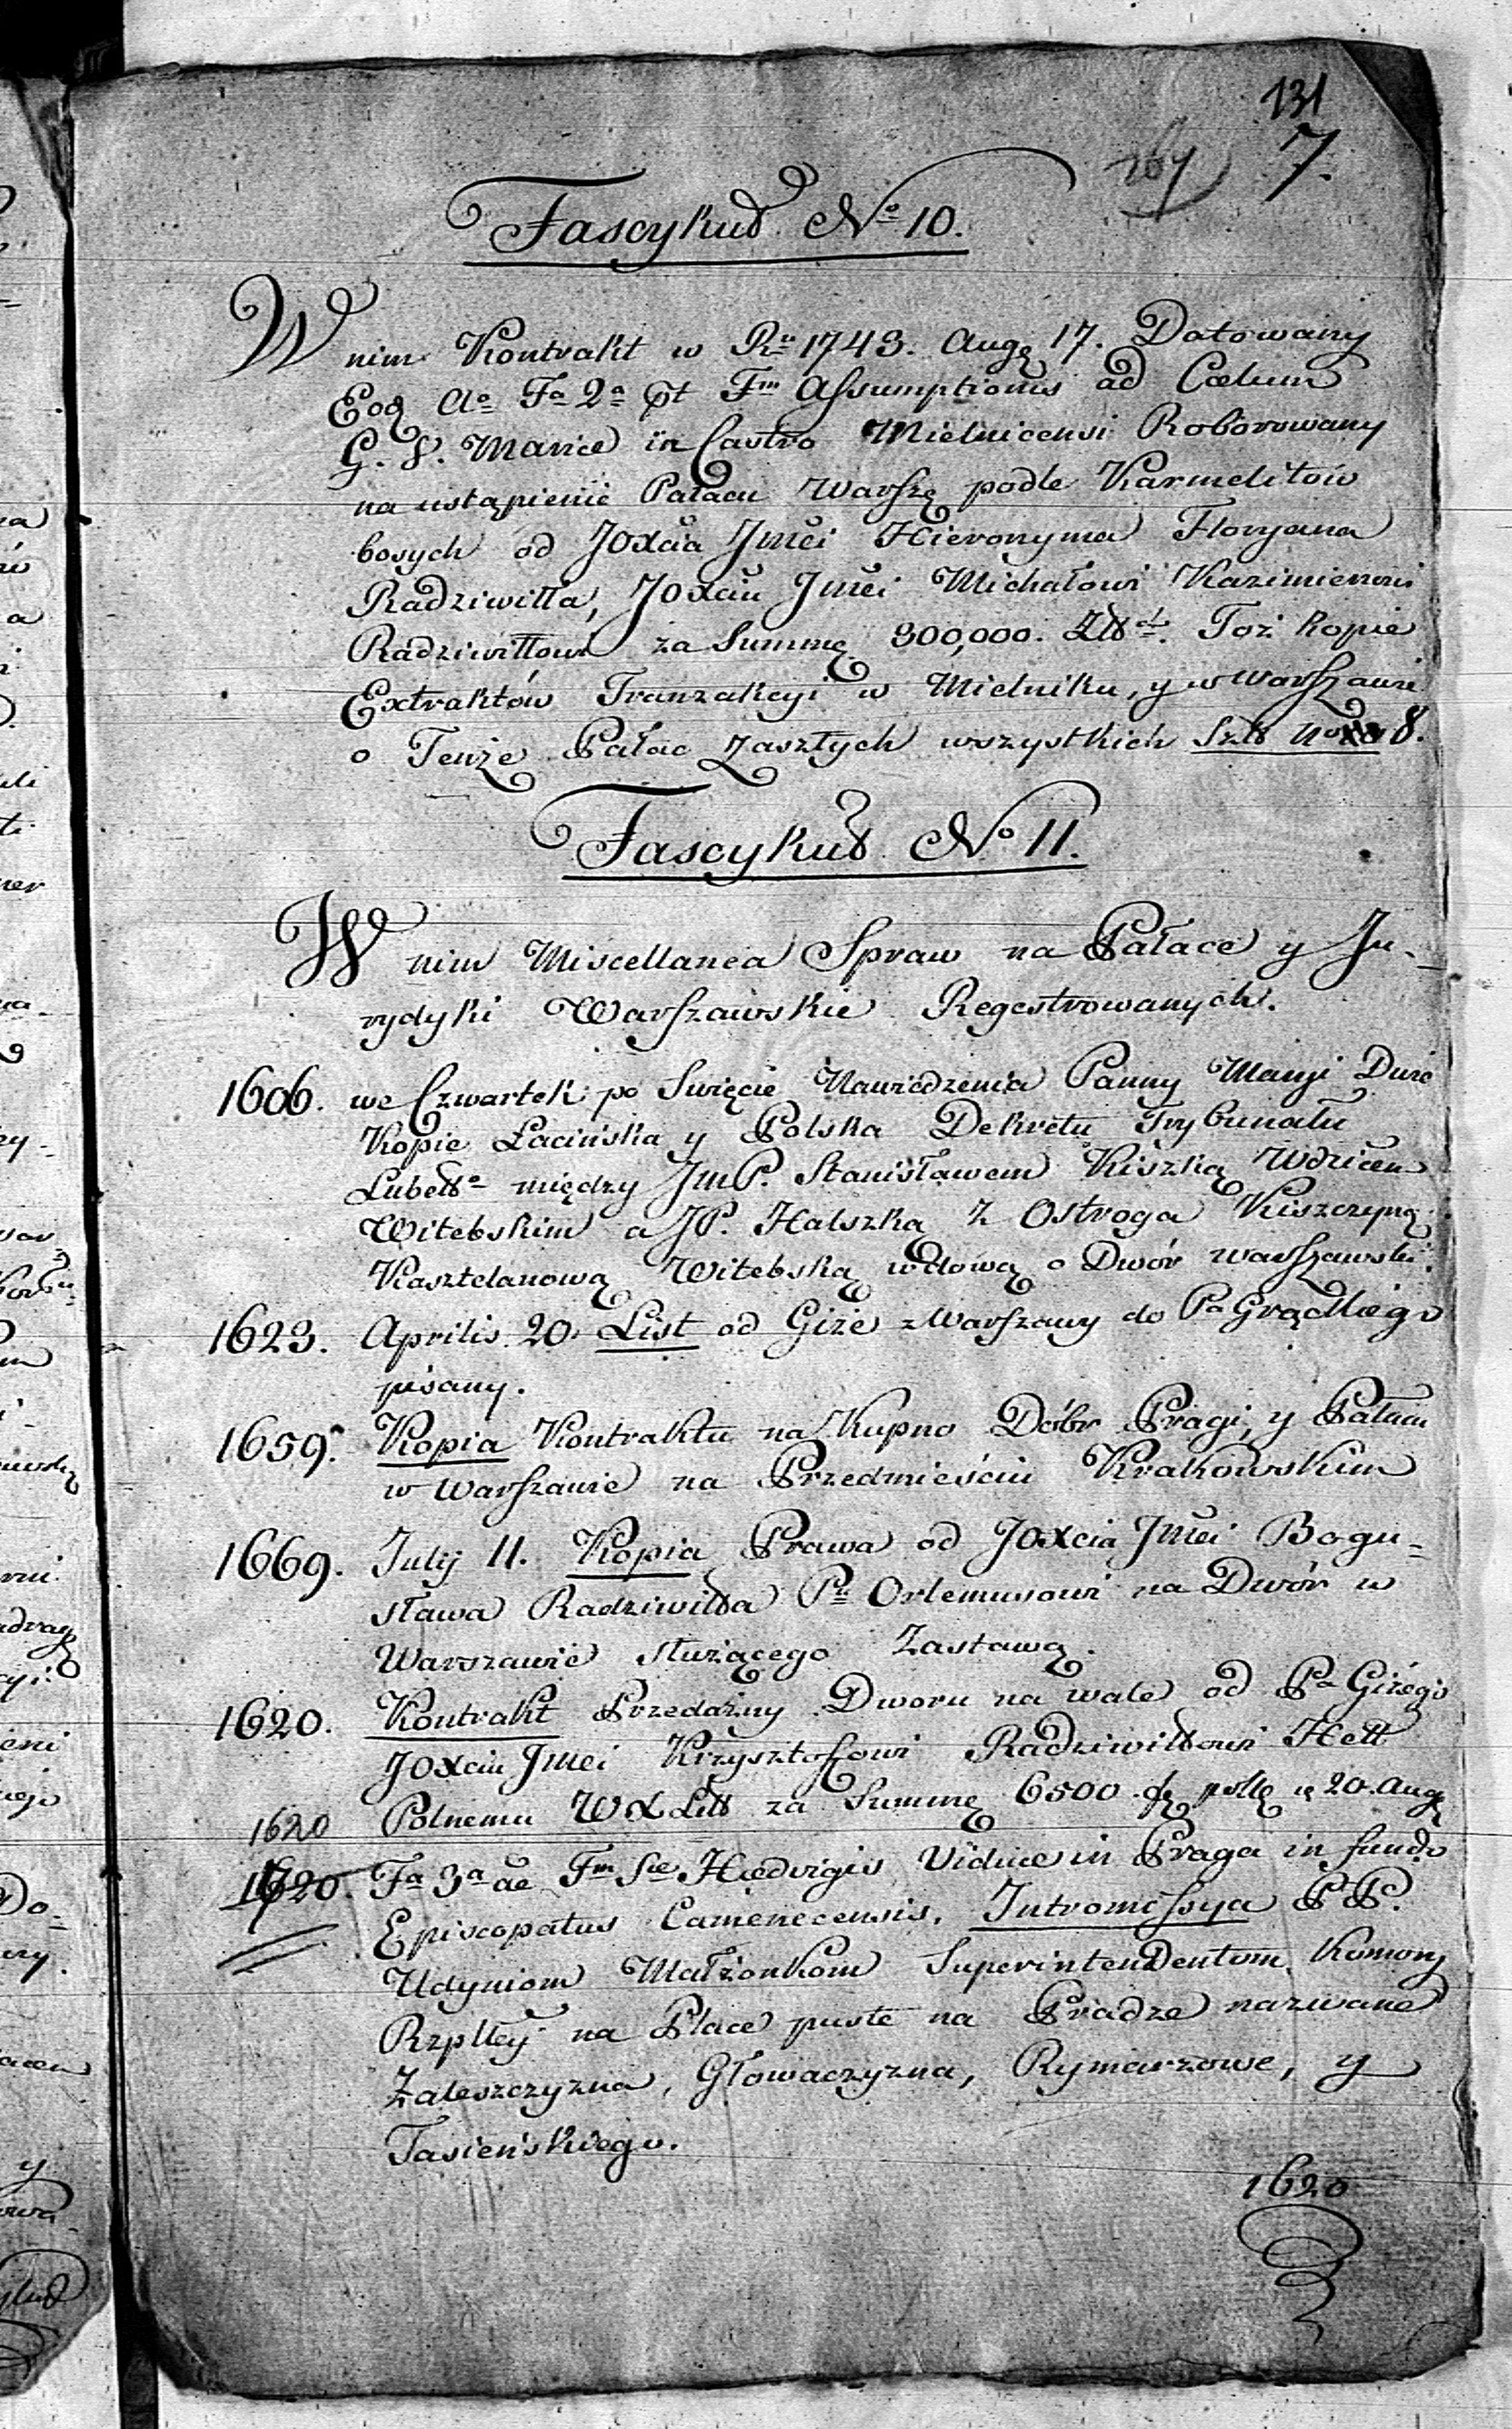 131
7.
Fascykuł No 10.
W nim Kontrakt w Ru 1743. Augę 17. Datowany
Eoq Ao Fa 2a pt Fm Assumptionis ad Cœlum
G. V. Mariæ in Castro Mielnicensi Roborowany
na ustąpienie Pałacu Warszę podle Karmelitów
bosych od JOXcia Jmći Hieronyma Floryana
Radziwiłła, JOXciu Jmći Michałowi Kazimierowi
Radziwiłłowi za Summę 300,000. Zł. Toż Kopie
Extraktów Tranzakcyi w Mielniku, y w Warszawie
o Tenże Pałac zaszłych wszystkich Szt Nro 8.
Fascykuł No 11.
W nim Miscellanea Spraw na Pałace y Ju-
rydyki Warszawskie Regestrowanych.
1606. we Czwartek po Swięcie Nawiedzenia Panny Maryi Dwie
Kopie Łacińska y Polska Dekretu Trybunału
Lubelo między JmP. Stanisławem Kiszką Wdzicem
Witebskim a JP. Halszką z Ostroga Kiszczyną
Kasztelanową Witebską wdową o Dwór warszawski.
1623. Aprilis 20 List od Giże z Warszawy do Pa Grądkiego
pisany.
1659. Kopia Kontraktu na Kupno Dóbr Pragi, y Pałacu
w Warszawie na Przedmieściu Krakowskim
1669. July 11. Kopia Prawa od JOXcia Jmći Bogu-
sława Radziwiłła Pu Orlemusowi na Dwór w
Warszawie służącego Zastawą.
1620. Kontrakt Przedażny Dworu na wale od Pa Giżego
JOXciu Jmći Krzysztofowi Radziwiłłowi Hett
Polnemu WXLitt za Summę 6500. fę polę 20. Augę
1620
1720. Fa 3a ae Fm Sæ Hedvigis Viduæ in Praga in fundo
Episcopatus Camenecensis. Intromissya PP.
Udyniom Małżonkom Superintendentom Komory
Rzpltey na Place puste na Pradze nazwane
Zaleszczyzna, Głowaczyzna, Rymarzowe, y
Tasieńskiego.
1620